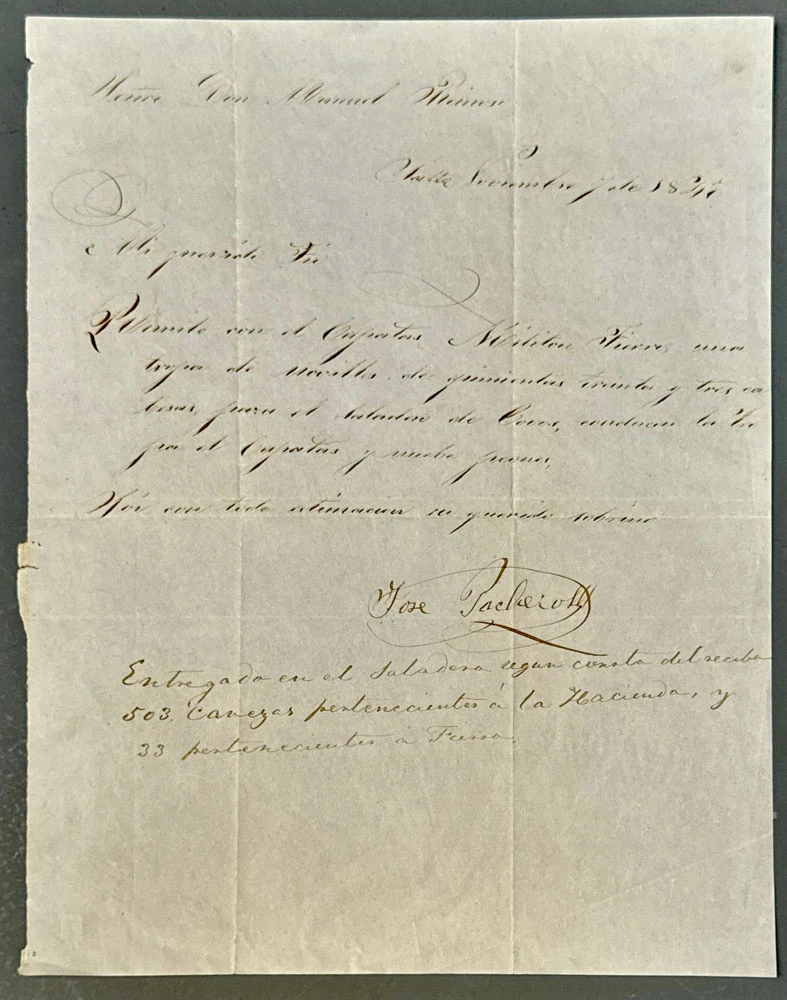 Señor Don Manuel
Noviembre 7 de 184
Mi querido Tio
Remito con el Capatas Militon una
tropa de novillos de quinientas treinta y tres ca
besas, para el Saladero de conducen la tro
pa el Capatas y nuebe peones,
Soy con toda estimacion su querido sobrino
Jose Pacheco
Entregado en el Saladero segun consta del recibo
503. Cavezas pertenecientes á la Hacienda, y
33 pertenecientes à